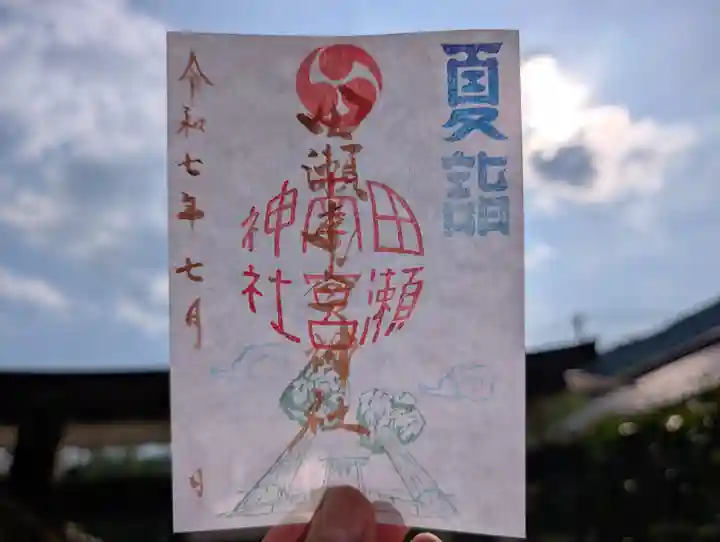 夏詣
田瀬南宮神社
田瀬
南宮
神社
令和七年七月 日